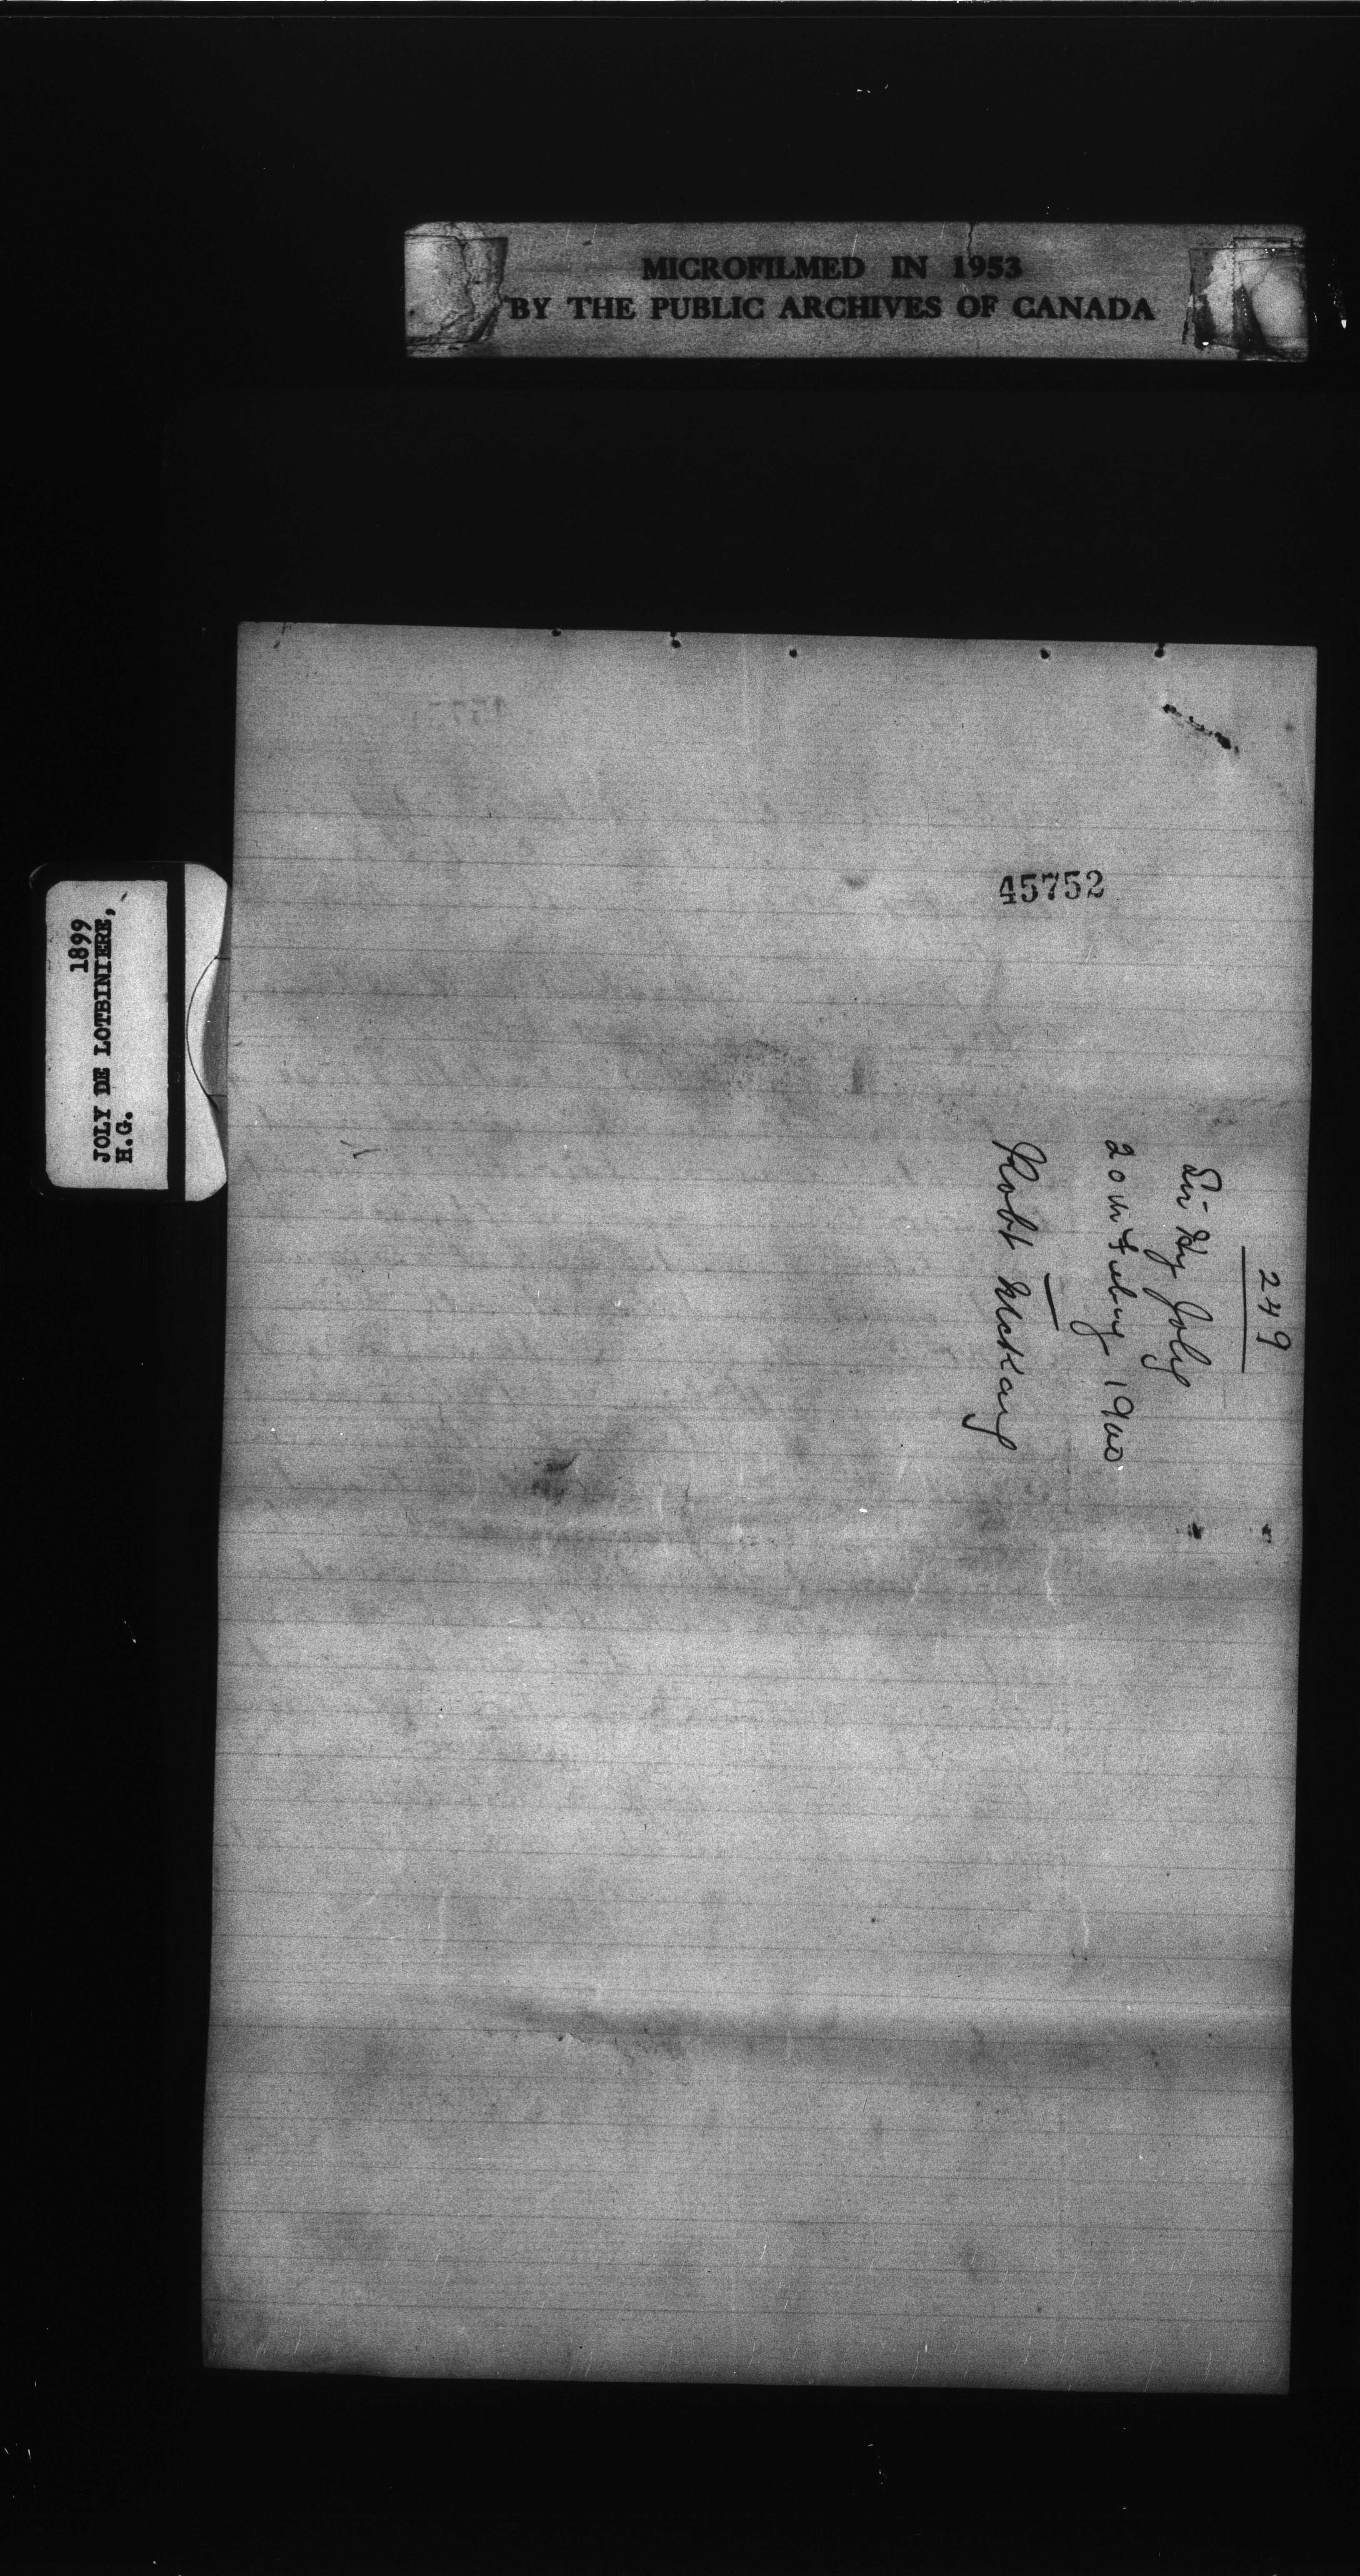 MICROFILMED IN 1953
BY THE PUBLIC ARCHIVES OF CANADA
1899
JOLY DE LOTBINIERE,
H.G.
45752
249
Sir Hy Joly
20th Feby 1900
Robt McKay